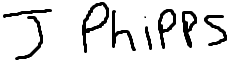 J PhiPPS